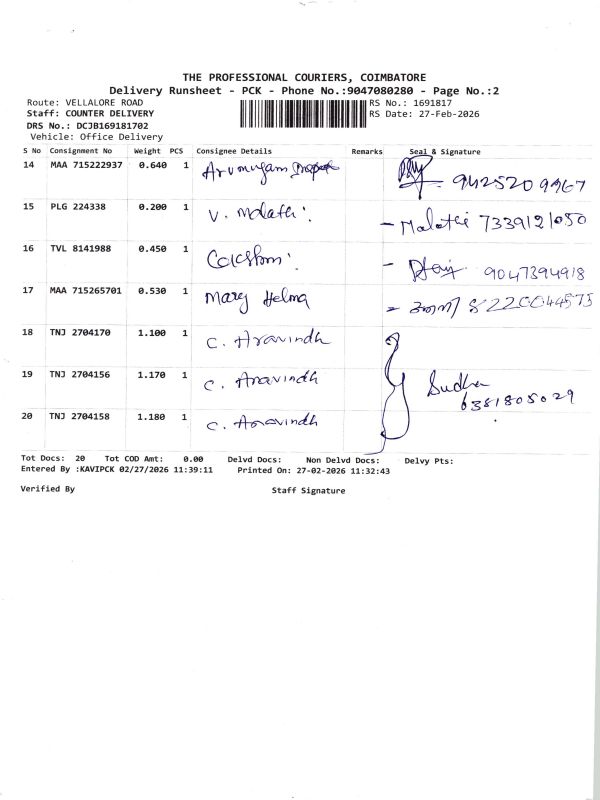 THE PROFESSIONAL COURIERS, COIMBATORE
Delivery Runsheet - PCK - Phone No.:9047080280 - Page No.:2
Route: VELLALORE ROAD RS No.: 1691817
Staff: COUNTER DELIVERY RS Date: 27-Feb-2026
DRS No.: DCJB169181702
Vehicle: Office Delivery
S No Consignment No Weight PCS Consignee Details Remarks Seal & Signature
14 MAA 715222937 0.640 1 Arumugam
15 PLG 224338 0.200 1 V. Malathi - Malathi 7339121050
16 TVL 8141988 0.450 1 9047394918
17 MAA 715265701 0.530 1 Mary Helma 8220044573
18 TNJ 2704170 1.100 1 C. Aravindh
19 TNJ 2704156 1.170 1 C. Aravindh Sudha
6381805029
20 TNJ 2704158 1.180 1 C. Aravindh
Tot Docs: 20 Tot COD Amt: 0.00 Delvd Docs: Non Delvd Docs: Delvy Pts:
Entered By :KAVIPCK 02/27/2026 11:39:11 Printed On: 27-02-2026 11:32:43
Verified By Staff Signature